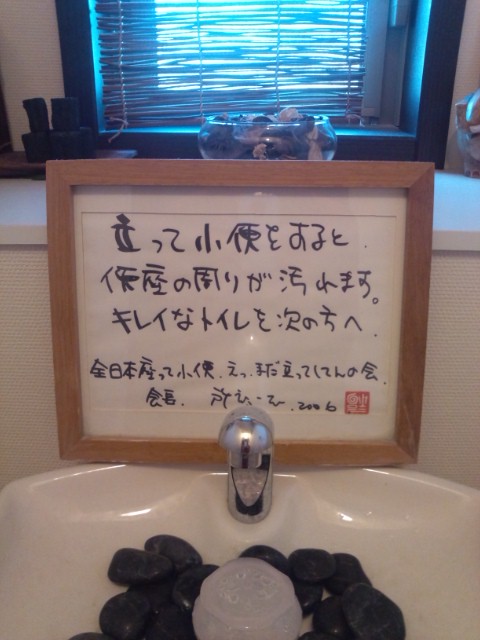 立って小便をすると.
便座の周りが汚れます。
キレイなトイレを次の方へ.
全日本座って小便.えっまだ立ってしてんの会.
会長. 2006